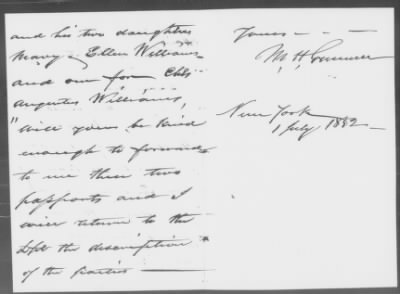 and his two daughters
Mary & Ellen Williams
and one for Chs
Augustus Williams,
"Will you be kind
enough to forward
to me these two
passports and I
will return to the
Dpt the description
of the parties
Yours - - -
M H
New York
1 July 1882